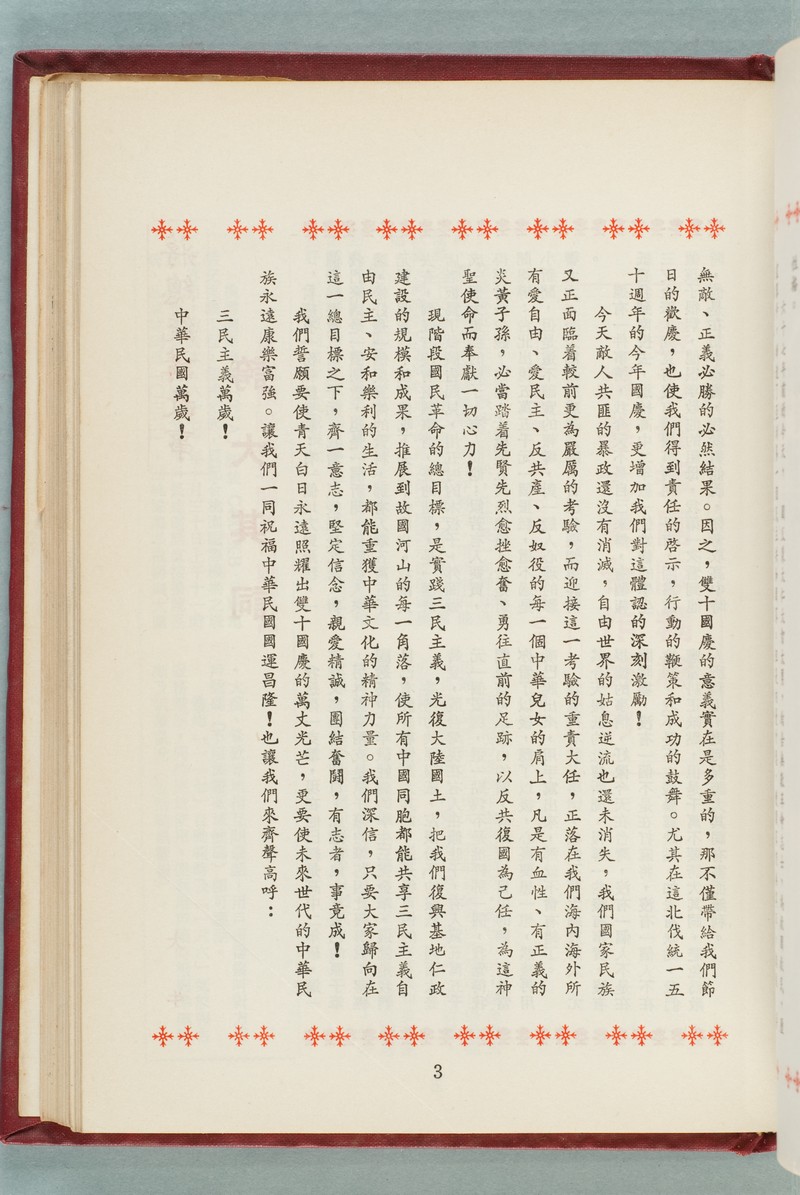 無敵、正義必勝的必然結果。因之，雙十國慶的意義實在是多重的，那不僅帶給我們節
日的歡慶，也使我們得到責任的啓示，行動的鞭策和成功的鼓舞。尤其在這北伐統一五
十週年的今年國慶，更增加我們對這體認的深刻激勵！
今天敵人共匪的暴政還沒有消滅，自由世界的姑息逆流也還未消失，我們國家民族
又正面臨着較前更為嚴厲的考驗，而迎接這一考驗的重責大任，正落在我們海內海外所
有愛自由、愛民主、反共產、反奴役的每一個中華兒女的肩上，凡是有血性、有正義的
炎黃子孫，必當踏着先賢先烈愈挫愈奮、勇往直前的足跡，以反共復國為己任，為這神
聖使命而奉獻一切心力！
現階段國民革命的總目標，是實踐三民主義，光復大陸國土，把我們復興基地仁政
建設的規模和成果，推展到故國河山的每一角落，使所有中國同胞都能共享三民主義自
由民主、安和樂利的生活，都能重獲中華文化的精神力量。我們深信，只要大家歸向在
這一總目標之下，齊一意志，堅定信念，親愛精誠，團結奮鬪，有志者，事竟成！
我們誓願要使青天白日永遠照耀出雙十國慶的萬丈光芒，更要使未來世代的中華民
族永遠康樂富強。讓我們一同祝福中華民國國運昌隆！也讓我們來齊聲高呼：
三民主義萬歲！
中華民國萬歲！
3